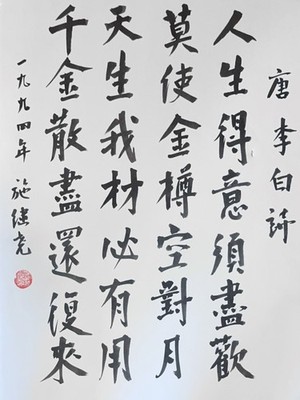 唐 李白诗
人生得意須盡歡
莫使金樽空對月
天生我材必有用
千金散盡還復來
一九九四年 施继堯